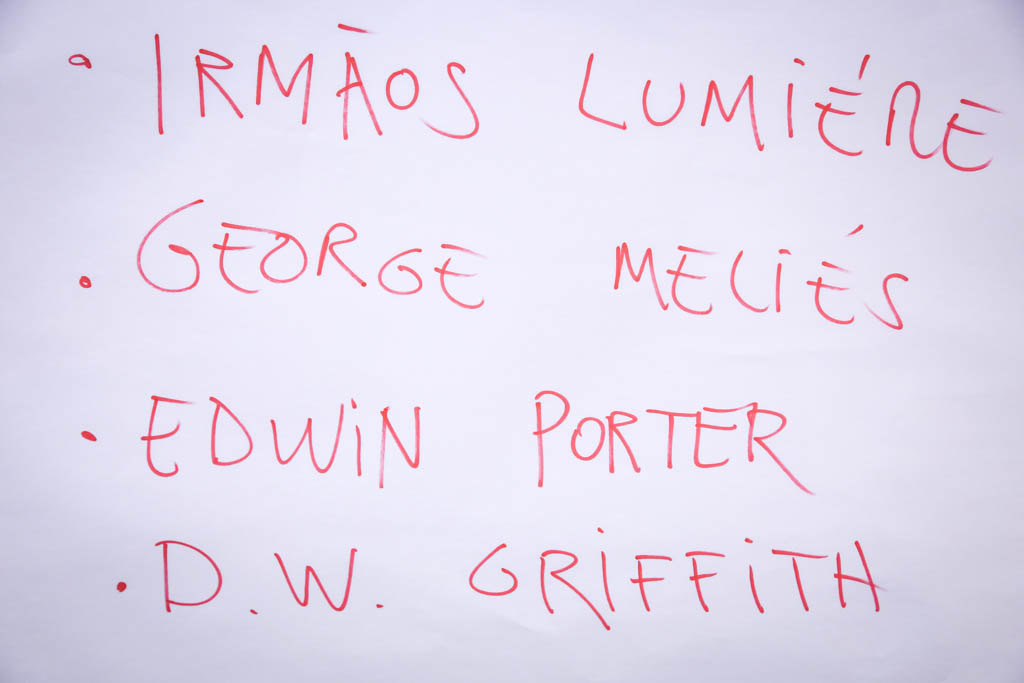 • IRMÃOS LUMIÉRE
• GEORGE MELIÉS
• EDWIN PORTER
• D.W. GRIFFITH